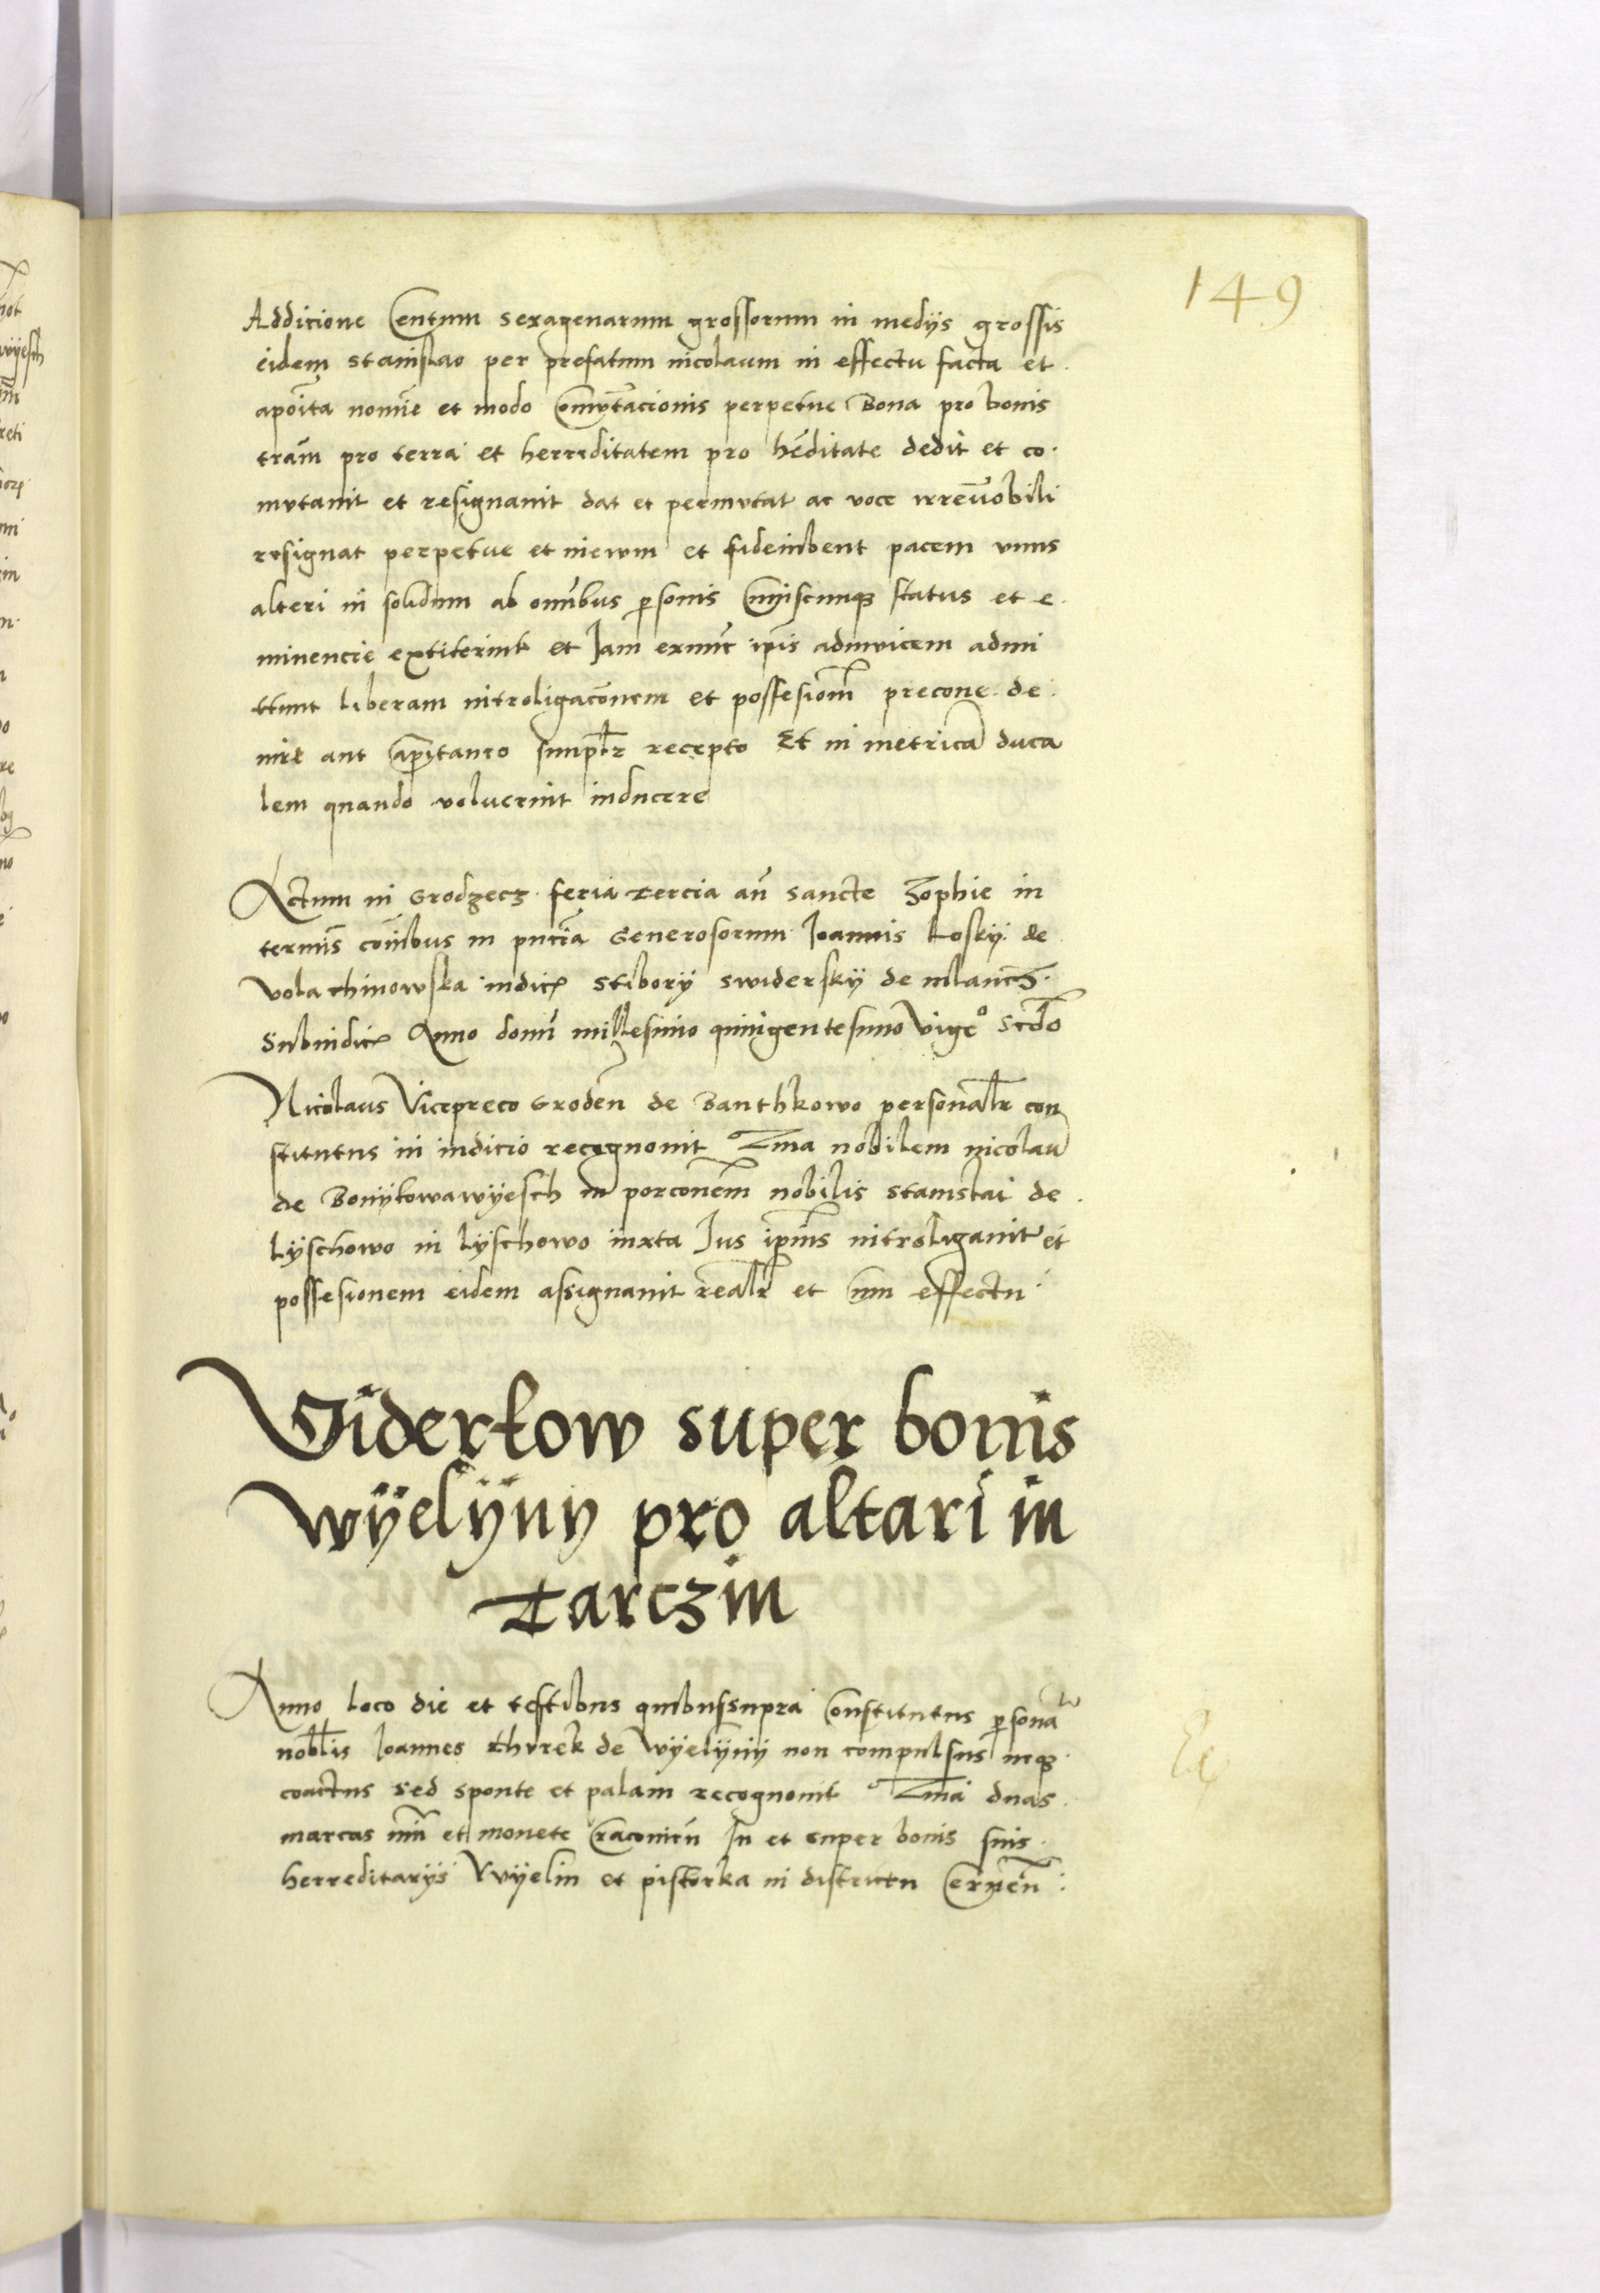 149
Addicione Centum sexagenarum grossorum in medijs grossis
eidem Stanislao per prefatum nicolaum in effectu facta et
apoīta nomīe et modo Comutacionis perpetue Bona pro bonis
trām pro terra et herreditatem pro hēditate dedit et co
mutauit et resignauit dat et permutat ac voce irreuobili
resignat perpetue et in ewm et fideiubent pacem vnus
alteri in solidum ab omībus psonis Cuiuscunqз status et e
minencie extiterint et Jam exnūc ipīs adinuicem admi
ttunt liberam introligacōnem et possesionem precone de
iure aut capitaneo simplr recepto Et in metrica duca
lem quando voluerint inducere
Actum in Grodzecz feria tercia an̄ sancte Zophie in
termīs coībus in pn̄cia Generosorum Joannis Losky de
Vola chinowska iudicis Stibory Swidersky de mlancz
Subiudicis Anno domī millesimo quingentesimo Vigeo scdo
Nicolaus Vicepreco Groden̄ de Banthkowo personalr con
stitutus in iudicio recognouit Quia nobilem nicolau
de Bonykowawyesch in porconem nobilis Stanislai de
Lyschowo in Lyschowo iuxta Jus ipius introligauit et
possesionem eidem assignauit realr et cum effectu
Viderkow super bonis
Wyelyny pro altari in
Tarczin
Anno loco die et testibus quibussupra Constitutus psonalr
nobilis Joannes thurek de Wyelyny non compulsus neqз
coactus sed sponte et palam recognouit Quia duas
marcas num et monete Craconien̄ In et super bonis suis
herreditarijs Wyelin et pistorka in districtu Cernen̄